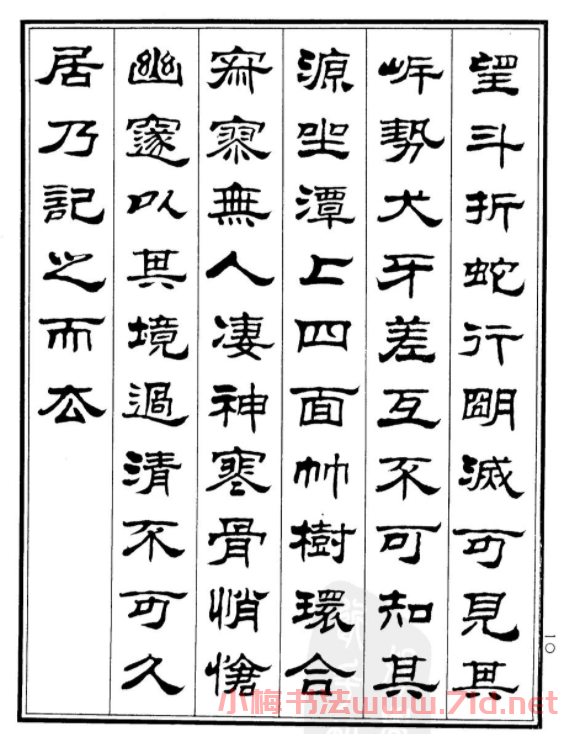 望斗折蛇行明滅可見其
岸勢犬牙差互不可知其
源坐潭上四面竹樹環合
寂寥無人凄神寒骨悄愴
幽邃以其境過清不可久
居乃記之而去
一〇
小梅书法www.71d.net